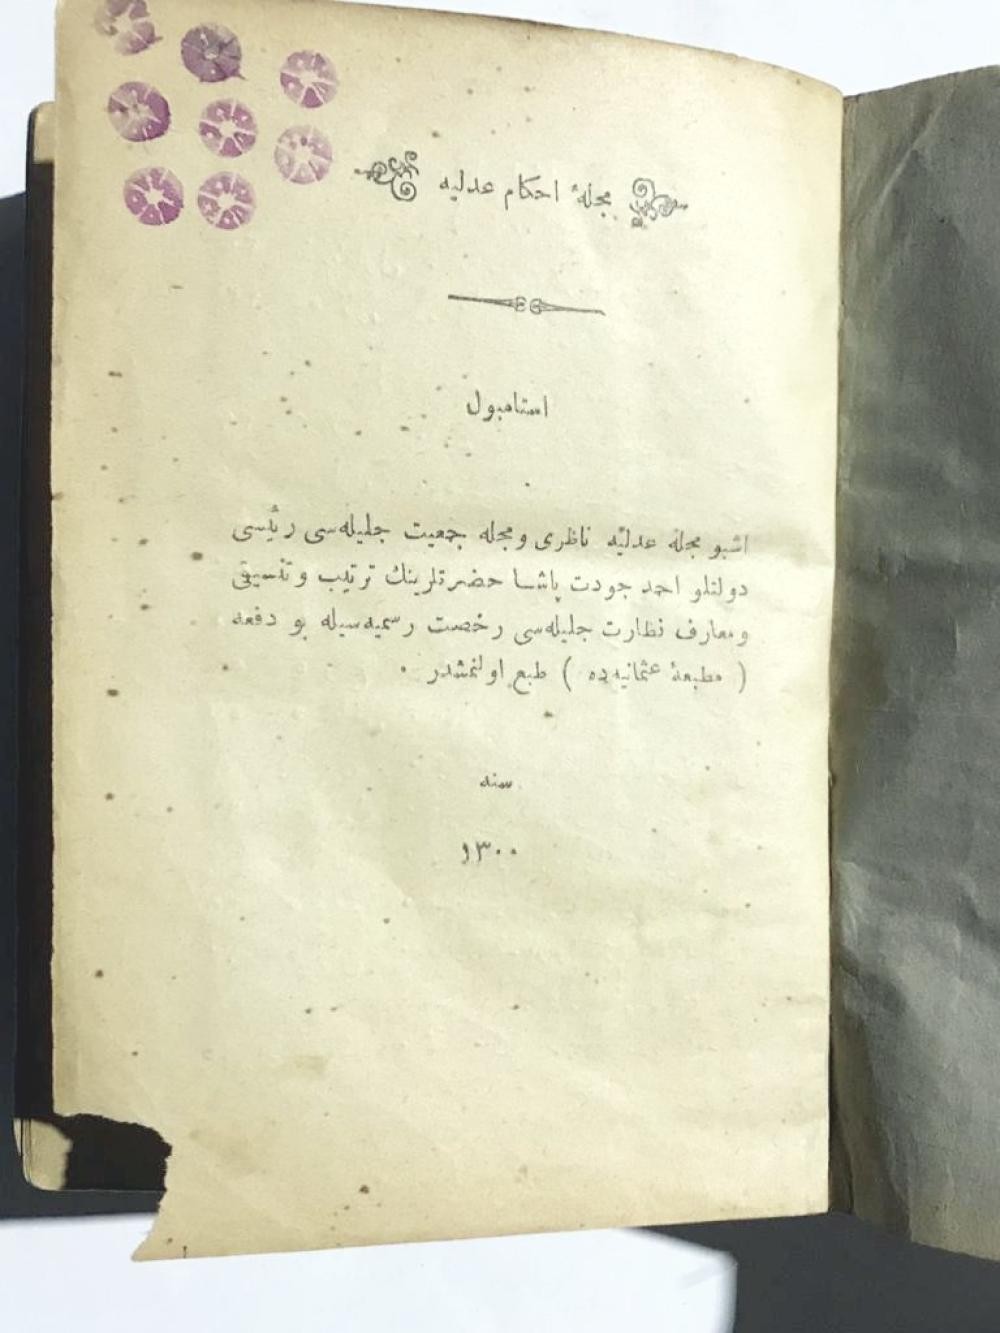 مجلهٔ احكام عدلیه
استامبول
اشبو مجله عدلیّه ناظری و مجله جمعیت جلیله‌سی رئیسی
دولتلو احمد جودت پاشا حضرتلرینك ترتیب و تنسیقی
و معارف نظارت جلیله‌سی رخصت رسمیه‌سیله بو دفعه
( مطبعهٔ عثمانیه‌ده ) طبع اولنمشدر ٠
سنه
١٣٠٠